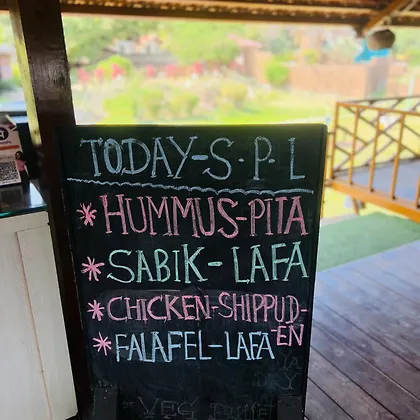 TODAY-S.P.L
* HUMMUS-PITA
* SABIK-LAFA
* CHICKEN-SHIPPUD-
EN
* FALAFEL-LAFA
VEG